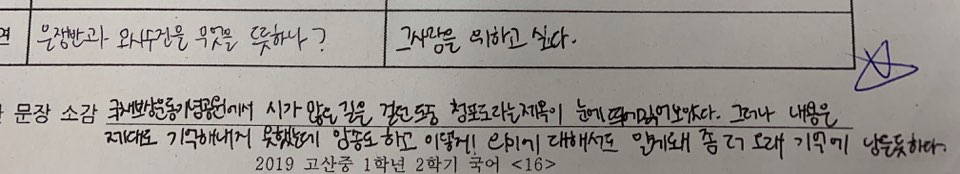 은쟁반과 모시수건은 무엇을 뜻하나? 그사람을 위하고 싶다.
문장 소감 국채보상운동기념공원에서 시가 많은 길을 걷던 도중 청포도라는제목이 눈에 띄어 읽어보았다. 그러나 내용은
제대로 기억해내지 못했는데 암송도 하고 이렇게 의미에 대해서도 알게돼 좀 더 오래 기억에 남을듯하다.
2019 고산중 1학년 2학기 국어 <16>